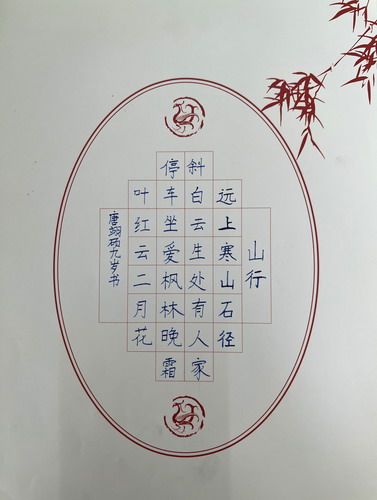 山行
远上寒山石径
斜白云生处有人家
停车坐爱枫林晚霜
叶红云二月花
唐翊硕九岁书